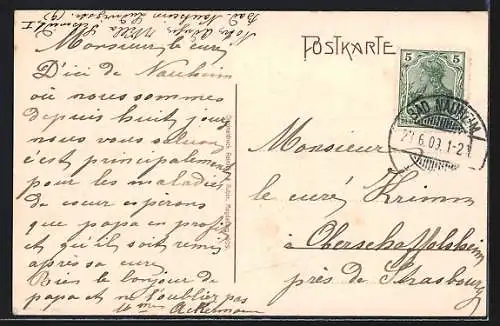 Bad Nauheim
POSTKARTE
5 5
BAD NAUHEIM
6.09.1-2
Monsieur le curé
D'ici de Nauheim
où nous sommes
depuis huit jours
nous vous saluons
c'est principalement
pour les maladies
de coeur esperons
que papa en profit
et qu'il soit remis
après sa cure
Bien le bonjour de
papa et ne l'oubliez pas
Ackermann
Monsieur
le curé Krimm
à Oberschaffolsheim
près de Strasbourg